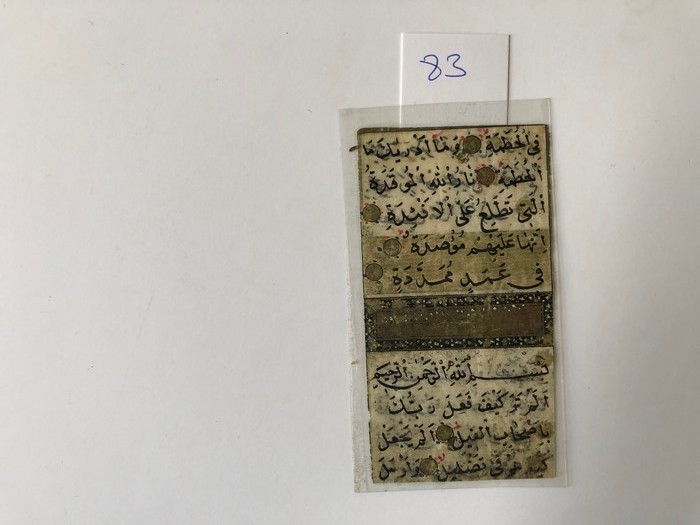 83
فِى الْحُطَمَةِ وَمَا اَدْرٰیكَ مَا
الْحُطَمَةُ نَارُ اللّٰهِ الْمُوقَدَةُ
الَّتِى تَطَّلِعُ عَلَى الْاَفْئِدَةِ
اِنَّهَا عَلَيْهِمْ مُؤْصَدَةٌ
فِى عَمَدٍ مُمَدَّدَةٍ
بِسْمِ اللّٰهِ الرَّحْمٰنِ الرَّحِيمِ
اَلَمْ تَرَ كَيْفَ فَعَلَ رَبُّكَ
بِاَصْحَابِ الْفِيلِ اَلَمْ يَجْعَلْ
كَيْدَهُمْ فِى تَضْلِيلٍ وَاَرْسَلَ